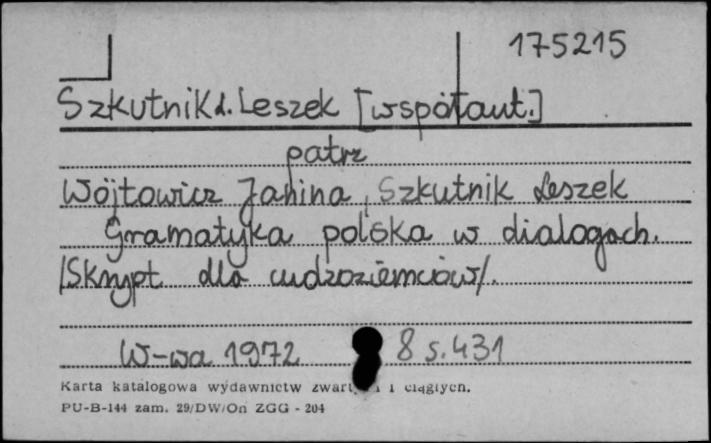 175215
Szkutnik Leszek [współaut.]
patrz
Wójtowicz Janina, Szkutnik Leszek
Gramatyka polska w dialogach.
/Skrypt dla cudzoziemców/.
W-wa 1972 8 s.431
Karta katalogowa wydawnictw i ciągłych.
PU-B-144 zam. 29/DW/On ZGG - 204